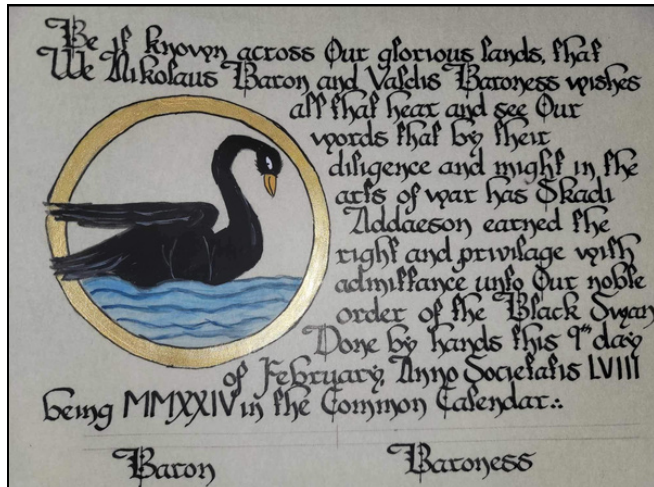 Be it known across Our glorious lands, that
We Nikolaus Baron and Valdis Baroness wishes
all that hear and see Our
words that by their
diligence and might in the
arts of war has Skadi
Addaeson earned the
right and privilage with
admittance unto Our noble
order of the Black Swan
Done by hands this 9th day
of February, Anno Societatis LVIII
being MMXXIV in the Common Calendar.:.
Baron Baroness